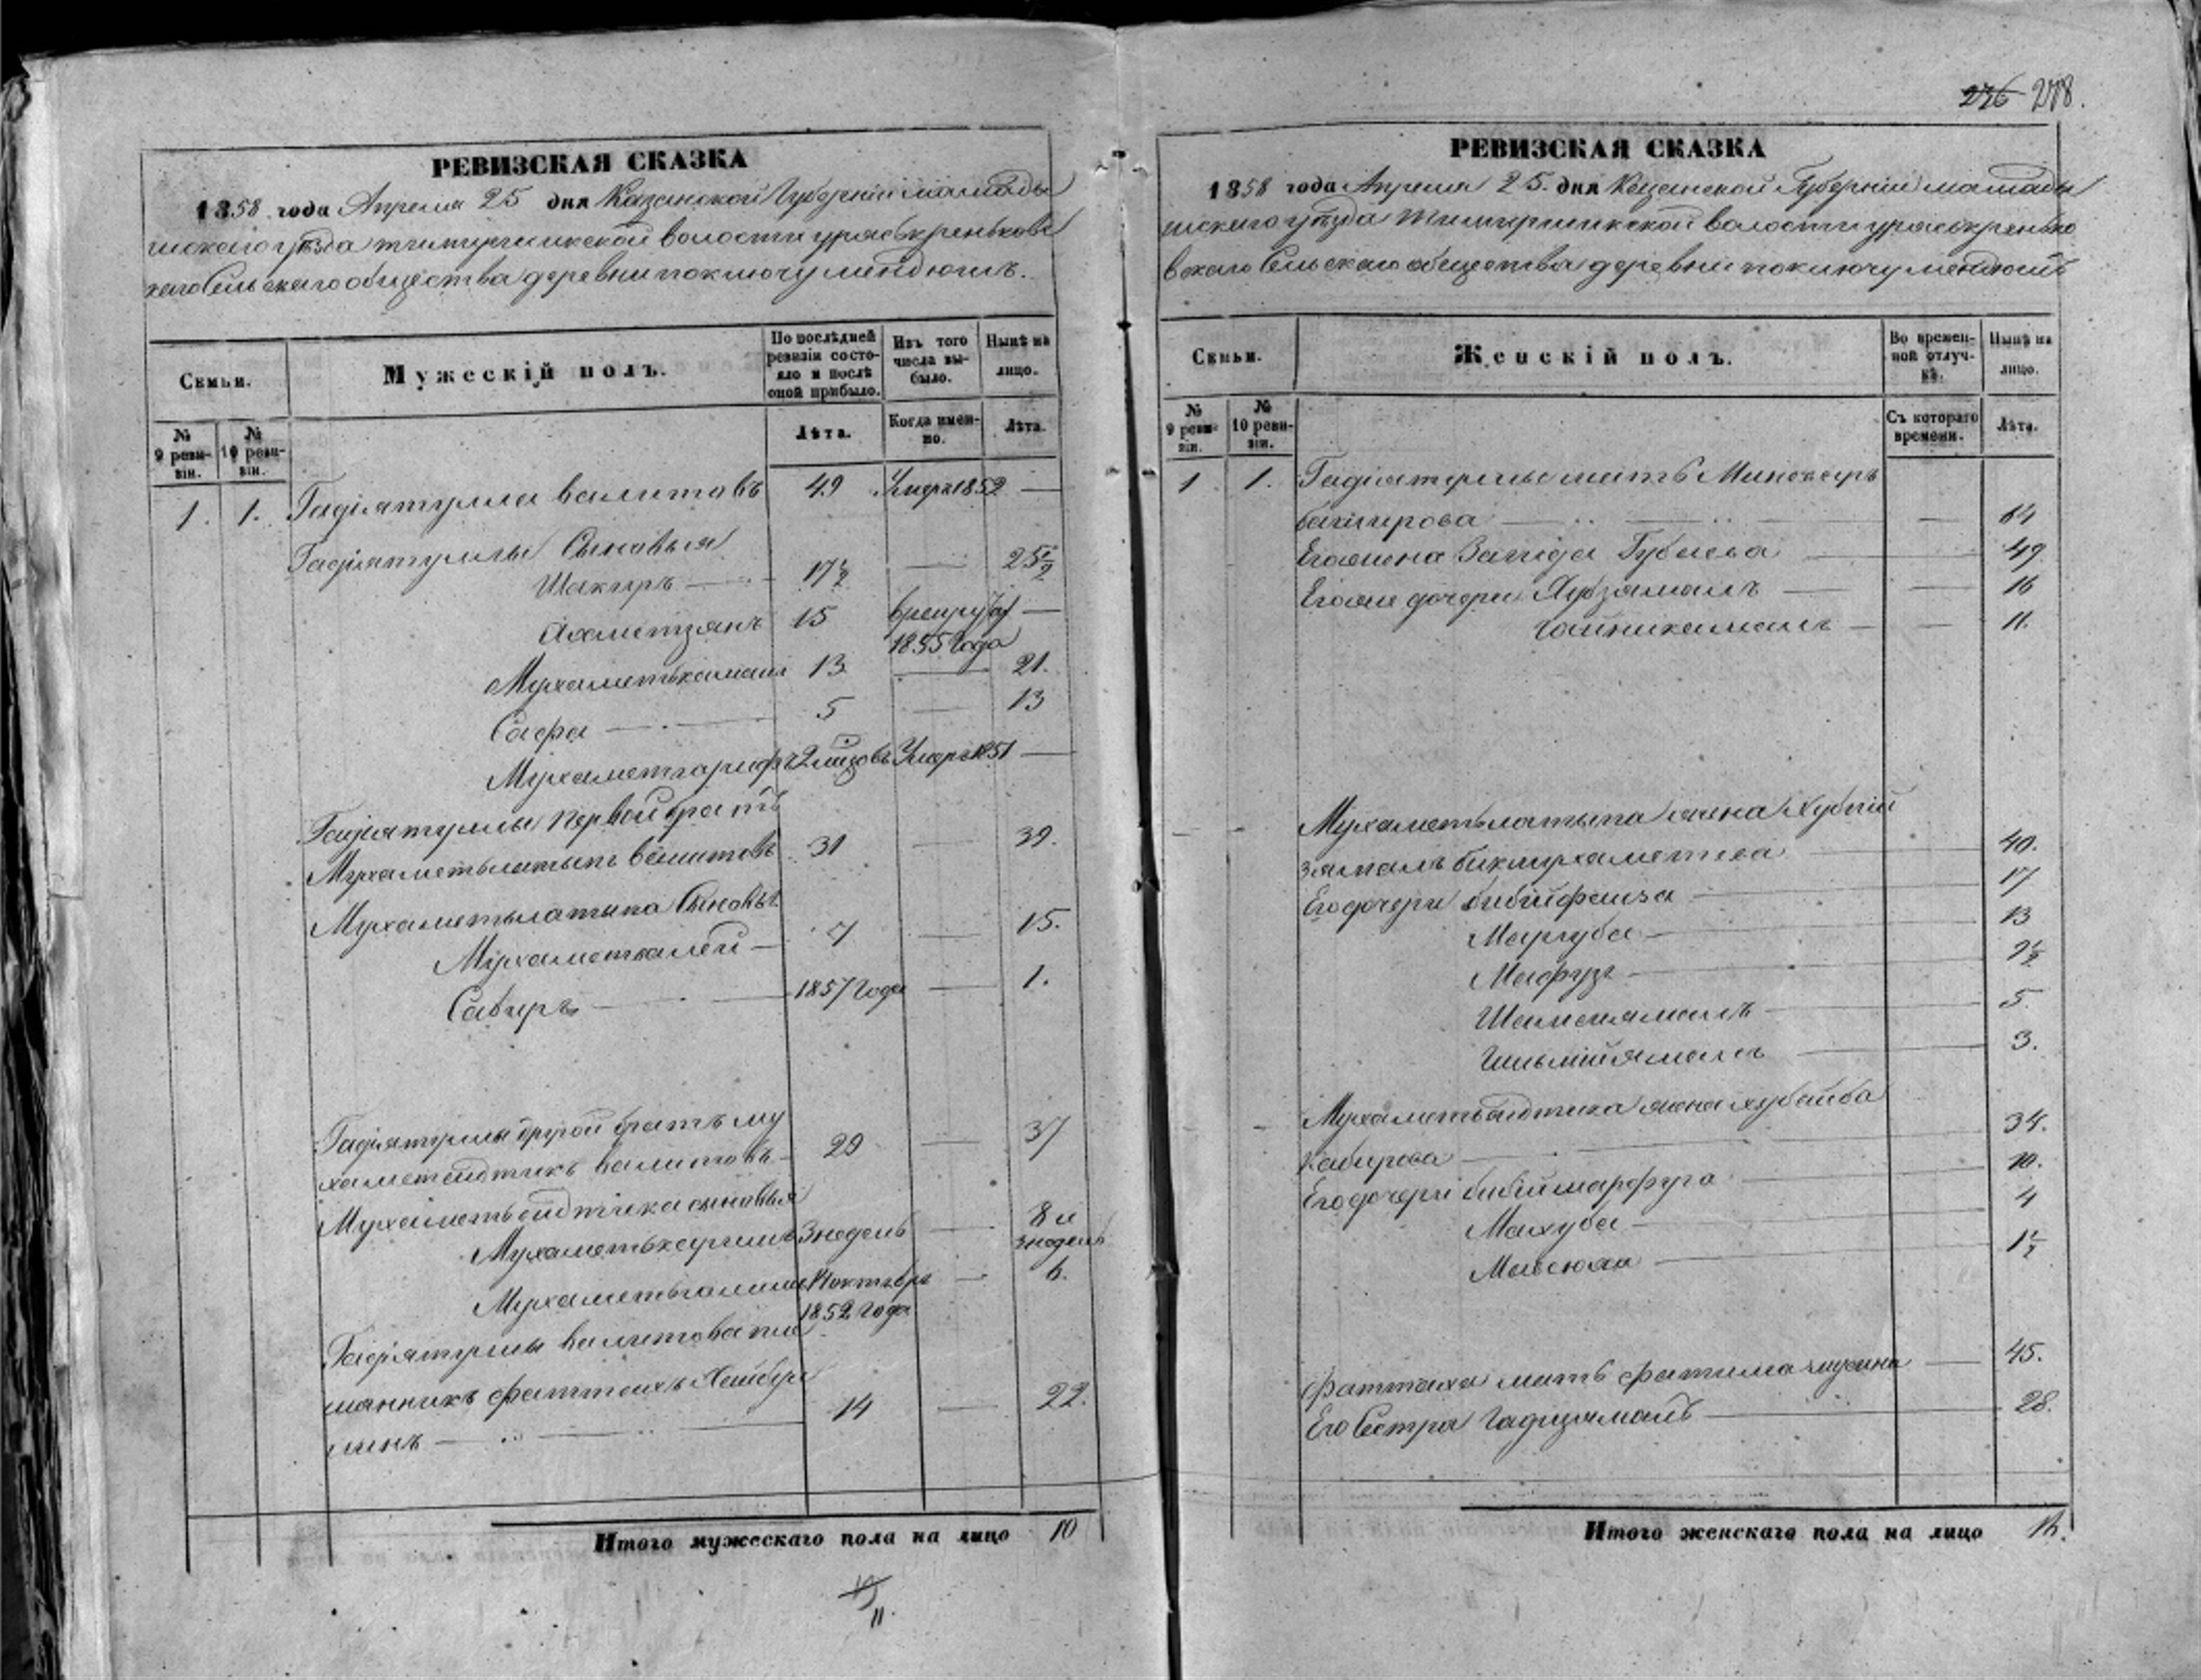 276 278.
РЕВИЗСКАЯ СКАЗКА
1858 года Апреля 25 дня Казанской Губерніи мамады
шскаго уѣзда волости
каго Сельскаго общества деревни по ключу мендюшъ.
Семьи.
Мужескій полъ.
По послѣдней ревизіи состояло и послѣ оной прибыло.
Изъ того числа выбыло.
Нынѣ на лицо.
№ 9 ревизіи.
№ 10 ревизіи.
Лѣта.
Когда именно.
Лѣта.
1. 1. Гадіятулла валитовъ 49 Умеръ 1852 —
Гадіятуллы Сыновья
Шакиръ — 17½ — 25½
Ахметзянъ 15 в рекруты —
1855 Года
Мухаметькамалъ 13 — 21.
Сафа — 5 — 13
Мухаметгарифъ 2 мѣсяцовъ Умеръ 1851 —
Гадіятуллы первой братъ
Мухаметьлатыпъ валитовъ 31 — 39.
Мухаметьлатыпа Сыновья
Мухаметвалей — 7 — 15.
Сабиръ — 1857 Года — 1.
Гадіятуллы другой братъ му
хаметсидтикъ валитовъ — 29 — 37
Мухаметьсидтика сыновья
Мухаметькаримъ 3 недель — 8 и
3 недель
Мухаметьгалимъ октября — 6.
1852 Года
Гадіятуллы валитова пле
мянникъ фаттахъ Хайбул
линъ — 14 — 22.
Итого мужескаго пола на лицо 10
11.
РЕВИЗСКАЯ СКАЗКА
1858 года Апреля 25. дня Казанской Губерніи мамады
шскаго уѣзда волости
вскаго Сельскаго общества деревни по ключу мендюшъ
Семьи.
Женскій полъ.
Во временной отлучкѣ.
Нынѣ на лицо.
№ 9 ревизіи.
№ 10 ревизіи.
Съ котораго времени.
Лѣта.
1 1. Гадіятуллы мать
баширова — — 64
Его жена Вагида Губаева — — 49
Его же дочери — — 16
Гайникамалъ — — 11.
Мухаметьлатыпа жена Хубый
замалъ бикмухаметева — 40.
Его дочери бибифаиза — 17
Маргуба — 13
Мафуза — 9½
Шамсиямалъ — 5
— 3.
Мухаметьсидтика жена хубайба
Кабирова — 34.
Его дочери бибимарфуга — 10.
Махуба — 4
— 1½
фаттаха мать фатима — 45.
Его Сестра — 28.
Итого женскаго пола на лицо